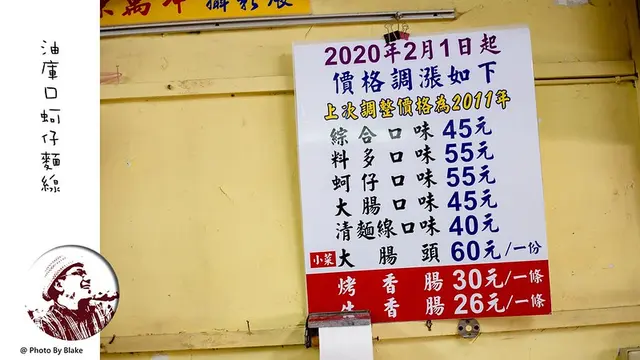 攝影展
油庫口蚵仔麵線
2020年2月1日起
價格調漲如下
上次調整價格為2011年
綜合口味 45元
料多口味 55元
蚵仔口味 55元
大腸口味 45元
清麵線口味 40元
小菜 大腸頭 60元/一份
烤香腸 30元/一條
香腸 26元/一條
@ Photo By Blake